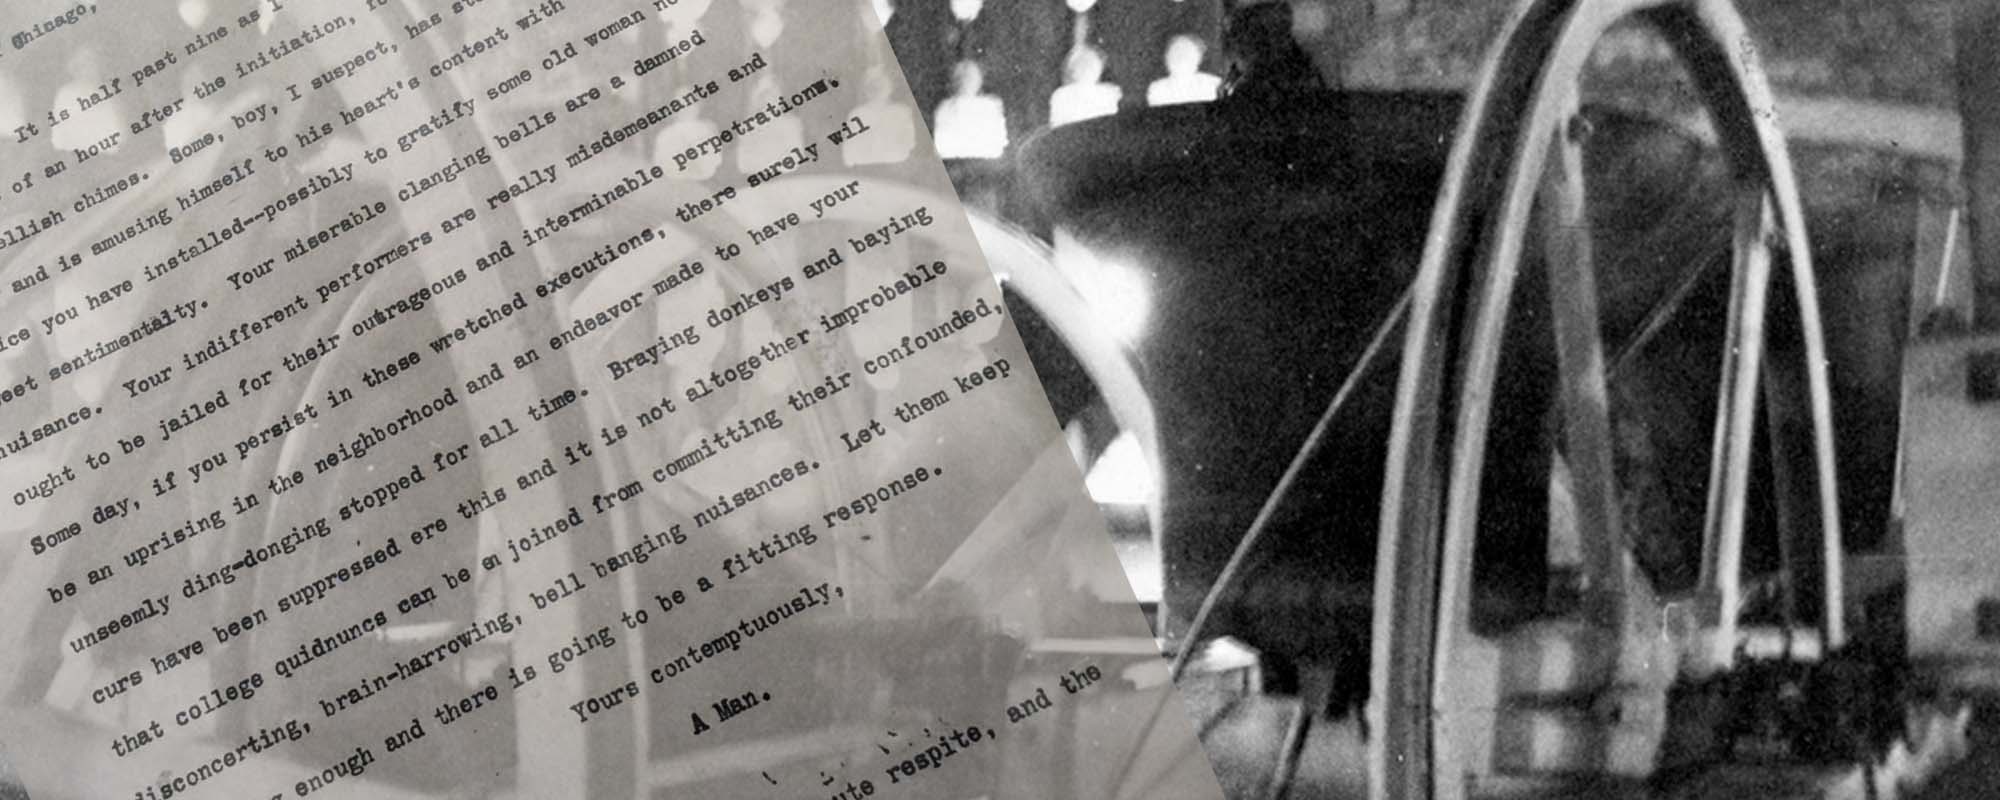 Chicago,
It is half past nine as I
of an hour after the initiation,
chimes. Some, boy, I suspect, has
and is amusing himself to his heart's content with
you have installed--possibly to gratify some old woman
sentimentalty. Your miserable clanging bells are a damned
nuisance. Your indifferent performers are really misdemeanants and
ought to be jailed for their outrageous and interminable perpetrations.
Some day, if you persist in these wretched executions, there surely wil
be an uprising in the neighborhood and an endeavor made to have your
unseemly ding-donging stopped for all time. Braying donkeys and baying
curs have been suppressed ere this and it is not altogether improbable
that college quidnuncs can be en joined from committing their confounded,
disconcerting, brain-harrowing, bell banging nuisances. Let them keep
enough and there is going to be a fitting response.
Yours contemptuously,
A Man.
respite, and the